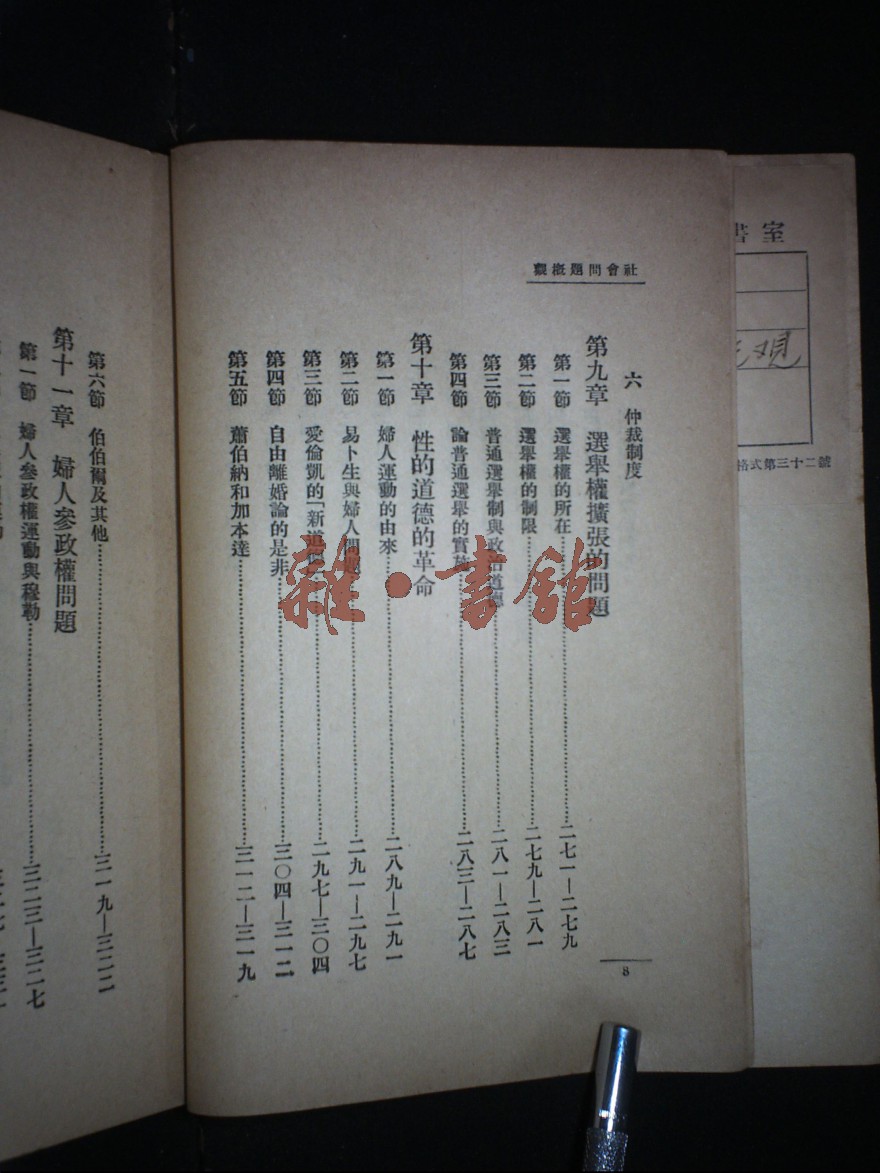 書室
觀
格式第三十二號
觀概題問會社
六 仲裁制度
第九章 選舉權擴張的問題
第一節 選舉權的所在……二七一—二七九
第二節 選舉權的制限……二七九—二八一
第三節 普通選舉制與政治道德……二八一—二八三
第四節 論普通選舉的實施……二八三—二八七
第十章 性的道德的革命
第一節 婦人運動的由來……二八九—二九一
第二節 易卜生與婦人問題……二九一—二九七
第三節 愛倫凱的「新道德」……二九七—三〇四
第四節 自由離婚論的是非……三〇四—三一二
第五節 蕭伯納和加本達……三一二—三一九
8
第六節 伯伯爾及其他……三一九—三二二
第十一章 婦人參政權問題
第一節 婦人參政權運動與穆勒……三二三—三二七
雜·書館